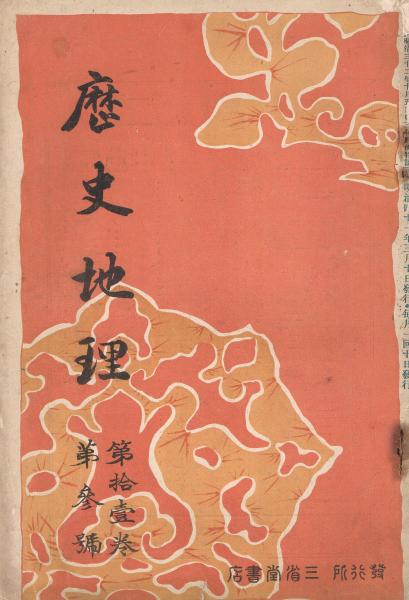 歷史地理
第拾壹卷
第參號
發行所 三省堂書店